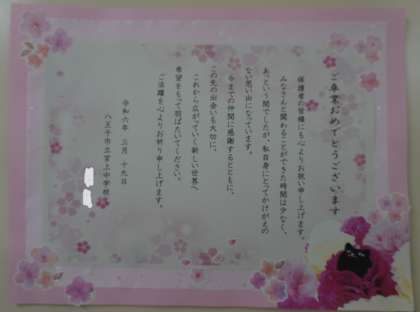 ご卒業おめでとうございます
保護者の皆様にも心よりお祝い申し上げます。
みなさんと関わることができた時間は少なく、
あっという間でしたが、私自身にとってかけがえの
ない思い出になっています。
今までの仲間に感謝するとともに、
この先の出会いも大切に、
これから広がっていく新しい世界へ
希望をもって羽ばたいてください。
ご活躍を心よりお祈り申し上げます。
令和六年 三月 十九日
八王子市立宮上中学校